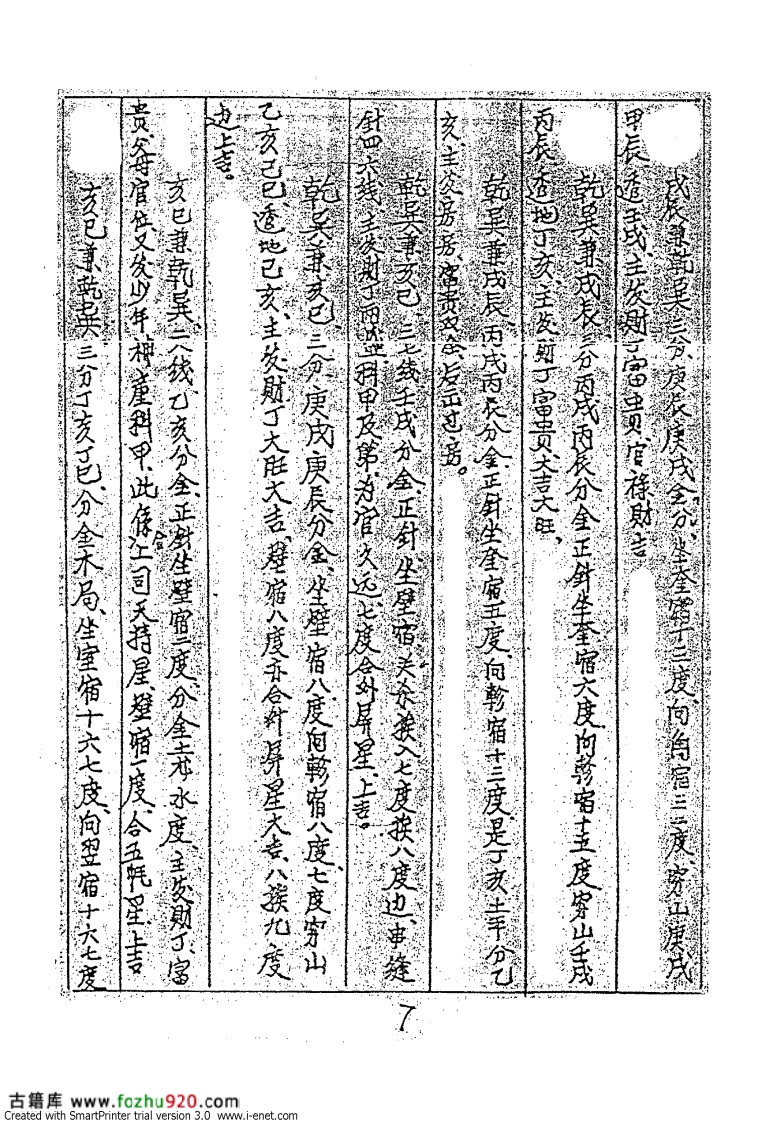 戌辰兼乾巽三分、庚辰庚戌金分、坐奎宿十二度、向角宿三二度、穿山庚戌
甲辰透壬戌、主发财丁富贵、官禄财吉
乾巽兼戌辰、三分丙戌丙辰分金正針坐奎宿六度向轸宿十五度穿山壬戌
丙辰透地丁亥、主发财丁富贵、大吉大旺、
乾巽兼戌辰、丙戌丙辰分金、正針坐奎宿五度、向轸宿十三度是丁亥土平分乙
亥、主发房房、富贵双全后正过房。
乾巽兼亥巳、三七线壬戌分金、正針坐壁宿、关杀挨入七度挨八度边、串缝
針四六线、主发财丁两盛、科甲及第、为官久远、七度合外屏星、上吉。
乾巽兼亥巳、三分、庚戌庚辰分金、坐壁宿八度向轸宿八度七度穿山
乙亥己巳、透地己亥、主发财丁大旺大吉、壁宿八度亦合外屏星大吉、八挨九度
边上吉。
亥巳兼乾巽、二八线、乙亥分金、正針坐壁宿二度、分金土水度、主发财丁、富
贵、父母官位、又发少年、神童科甲、此條合上司天持星、壁宿一度、合五帐星上吉
亥巳兼乾巽三分丁亥丁巳、分金木局、坐室宿十六七度、向翌宿十六七度
7
古籍库 www.fozhu920.com
Created with SmartPrinter trial version 3.0 www.i-enet.com